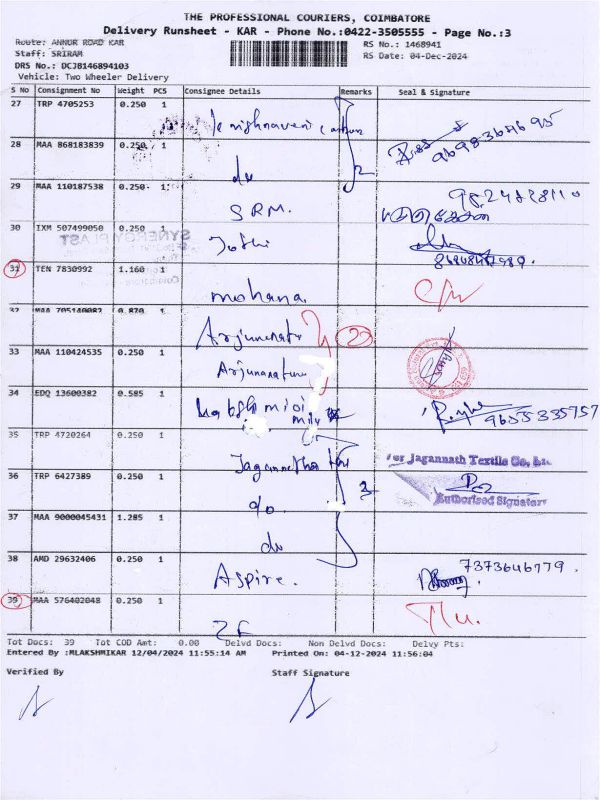 THE PROFESSIONAL COURIERS, COIMBATORE
Delivery Runsheet - KAR - Phone No.:0422-3505555 - Page No.:3
Route: ANNUR ROAD KAR
RS No.: 1468941
Staff: SRIRAM
RS Date: 04-Dec-2024
DRS No.: DCJ8146894103
Vehicle: Two Wheeler Delivery
S No Consignment No Weight PCS Consignee Details Remarks Seal & Signature
27 TRP 4705253 0.250 1
28 MAA 868183839 0.250 1 do 2
29 MAA 110187538 0.250 1 SRM.
30 IXM 507499050 0.250 1 Joshi
SYNERGY PLAST
31 TEN 7830992 1.160 1 mohana
32 MAA 705140082 0.870 1 Arjunenatr
33 MAA 110424535 0.250 1
34 EDQ 13600382 0.585 1 9655335757
35 TRP 4720264 0.250 1
For Jagannath Textile Co, Ltd
36 TRP 6427389 0.250 1 do. 3
Authorised Signatory
37 MAA 9000045431 1.285 1 do
38 AMD 29632406 0.250 1 Aspire. 7373646779.
39 MAA 576402048 0.250 1 ZF
Tot Docs: 39 Tot COD Amt: 0.00 Delvd Docs: Non Delvd Docs: Delvy Pts:
Entered By :MLAKSHMIKAR 12/04/2024 11:55:14 AM Printed On: 04-12-2024 11:56:04
Verified By Staff Signature